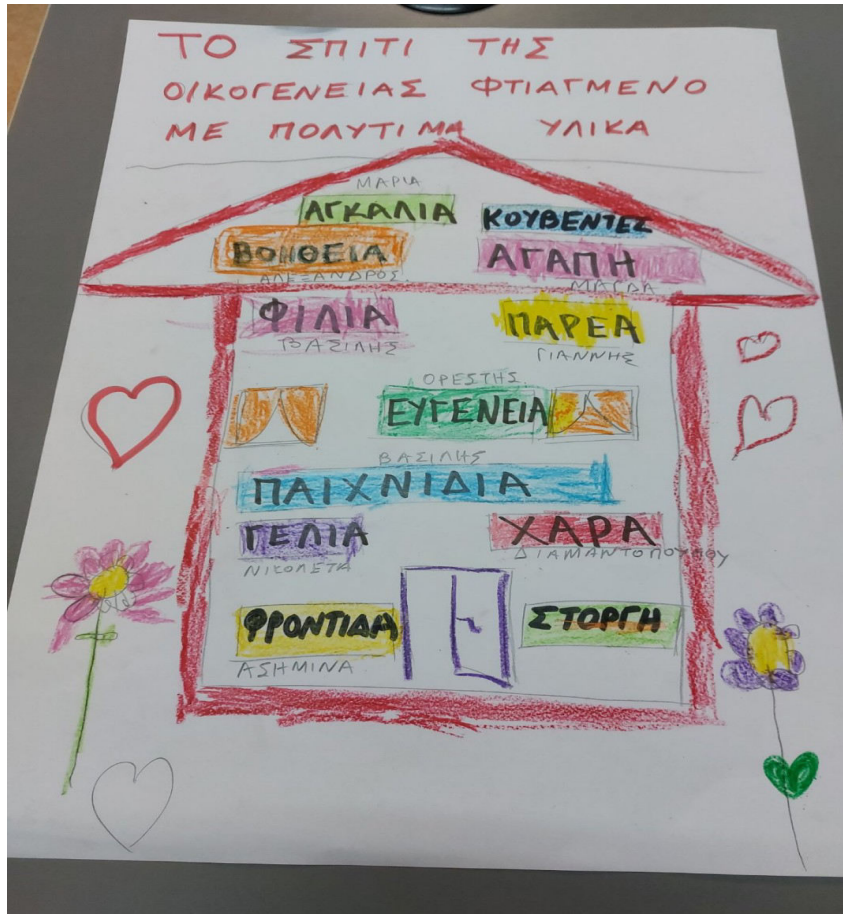 ΤΟ ΣΠΙΤΙ ΤΗΣ
ΟΙΚΟΓΕΝΕΙΑΣ ΦΤΙΑΓΜΕΝΟ
ΜΕ ΠΟΛΥΤΙΜΑ ΥΛΙΚΑ
ΜΑΡΙΑ
ΑΓΚΑΛΙΑ ΚΟΥΒΕΝΤΕΣ
ΒΟΗΘΕΙΑ ΑΓΑΠΗ
ΑΛΕΞΑΝΔΡΟΣ ΜΑΓΔΑ
ΦΙΛΙΑ ΠΑΡΕΑ
ΒΑΣΙΛΗΣ ΓΙΑΝΝΗΣ
ΟΡΕΣΤΗΣ
ΕΥΓΕΝΕΙΑ
ΒΑΣΙΛΗΣ
ΠΑΙΧΝΙΔΙΑ
ΓΕΛΙΑ ΧΑΡΑ
ΝΙΚΟΛΕΤΑ ΔΙΑΜΑΝΤΟΠΟΥΛΟΥ
ΦΡΟΝΤΙΔΑ ΣΤΟΡΓΗ
ΑΣΗΜΙΝΑ